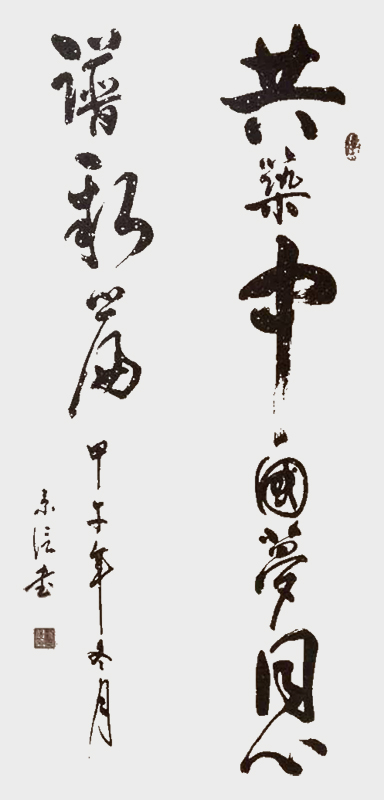 共築中國夢同心
譜新篇
甲午年冬月